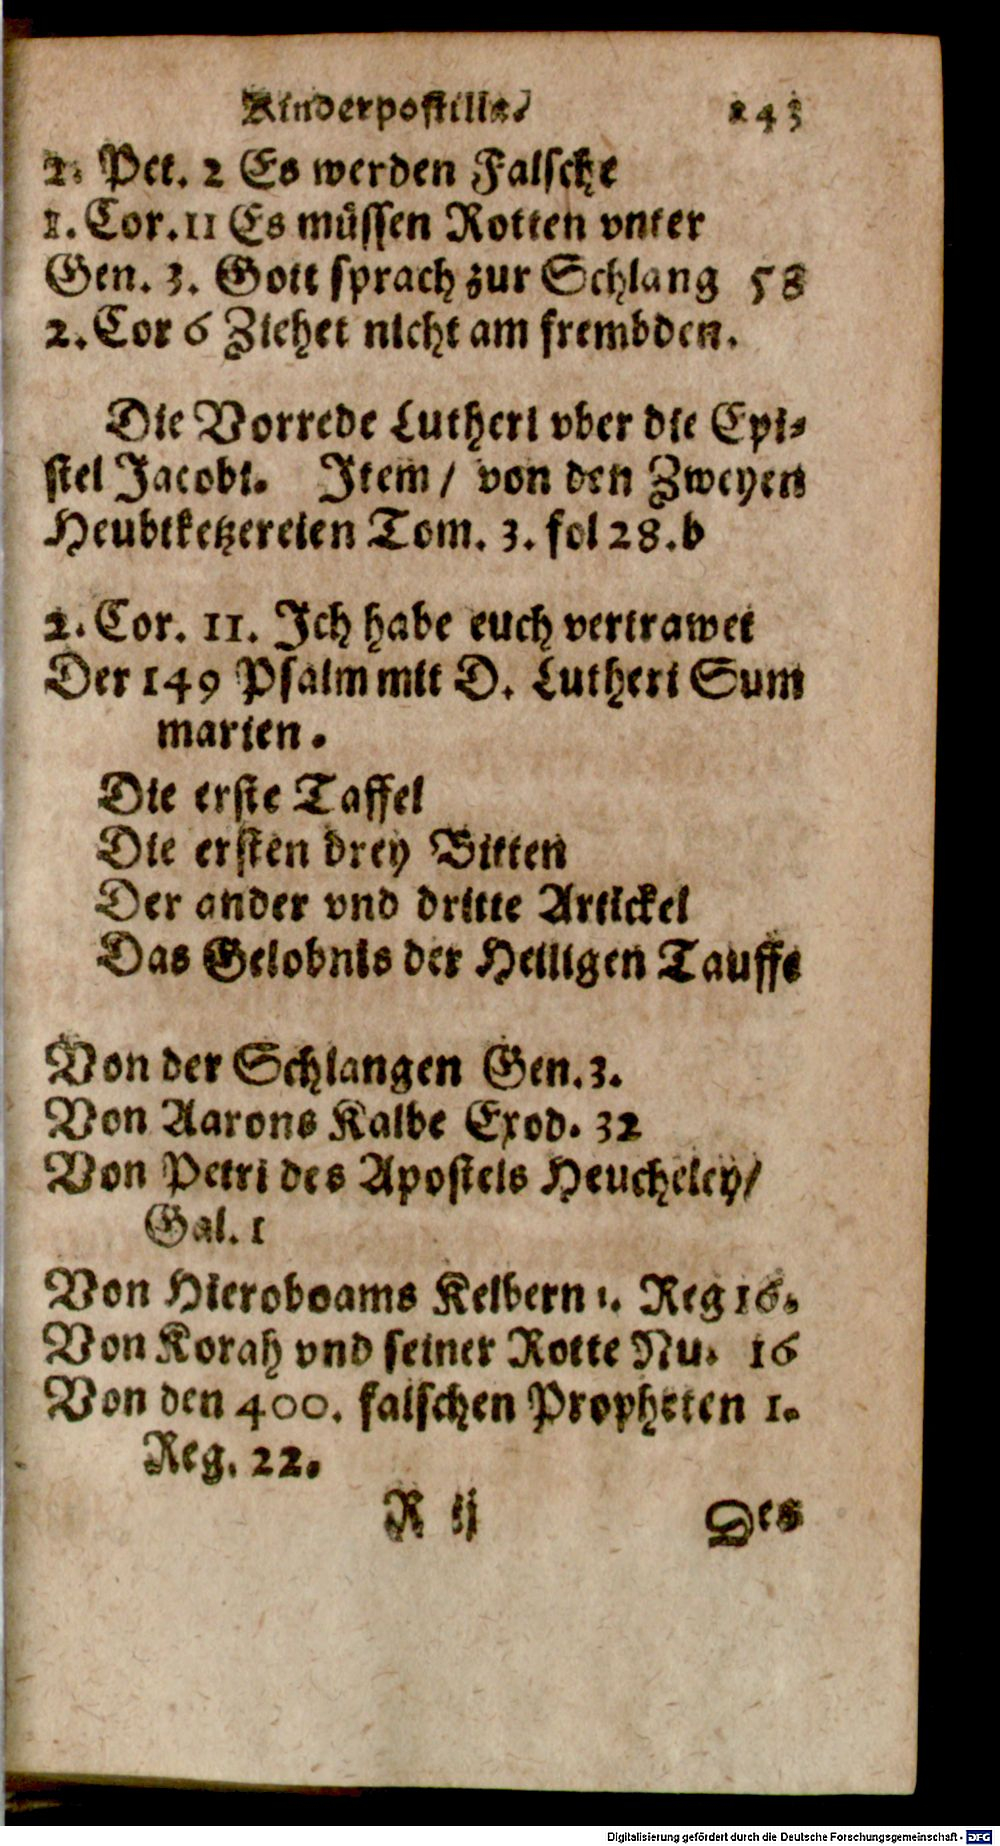 Kinderpostilla/ 243
2. Pet. 2 Es werden Falsche
1. Cor. 11 Es müssen Rotten vnter
Gen. 3. Gott sprach zur Schlang 58
2. Cor 6 Ziehet nicht am frembden.
Die Vorrede Lutheri vber die Epi-
stel Jacobi. Item / von den Zweyen
Heubtketzereien Tom. 3. fol 28. b
2. Cor. 11. Ich habe euch vertrawet
Der 149 Psalm mit D. Lutheri Sum
marien.
Die erste Taffel
Die ersten drey Bitten
Der ander vnd dritte Artickel
Das Gelobnis der Heiligen Tauffe
Von der Schlangen Gen. 3.
Von Aarons Kalbe Exod. 32
Von Petri des Apostels Heucheley/
Gal. 1
Von Hieroboams Kelbern 1. Reg 16.
Von Korah vnd seiner Rotte Nu. 16
Von den 400. falschen Propheten 1.
Reg. 22.
R ij Des
Digitalisierung gefördert durch die Deutsche Forschungsgemeinschaft - DFG